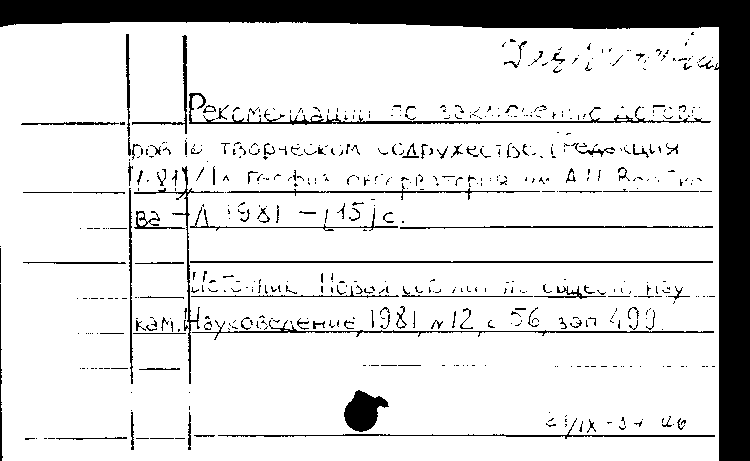 Рекомендации по заключению догово
ров о творческом содружестве. (Редакция
1-81)/Гл геофиз обсерватория им А.И Воейко
ва – Л, 1981 – [15] с.
Источник. Новая сов лит по обществ нау
кам. Науковедение, 1981, №12, с 56, зап 499